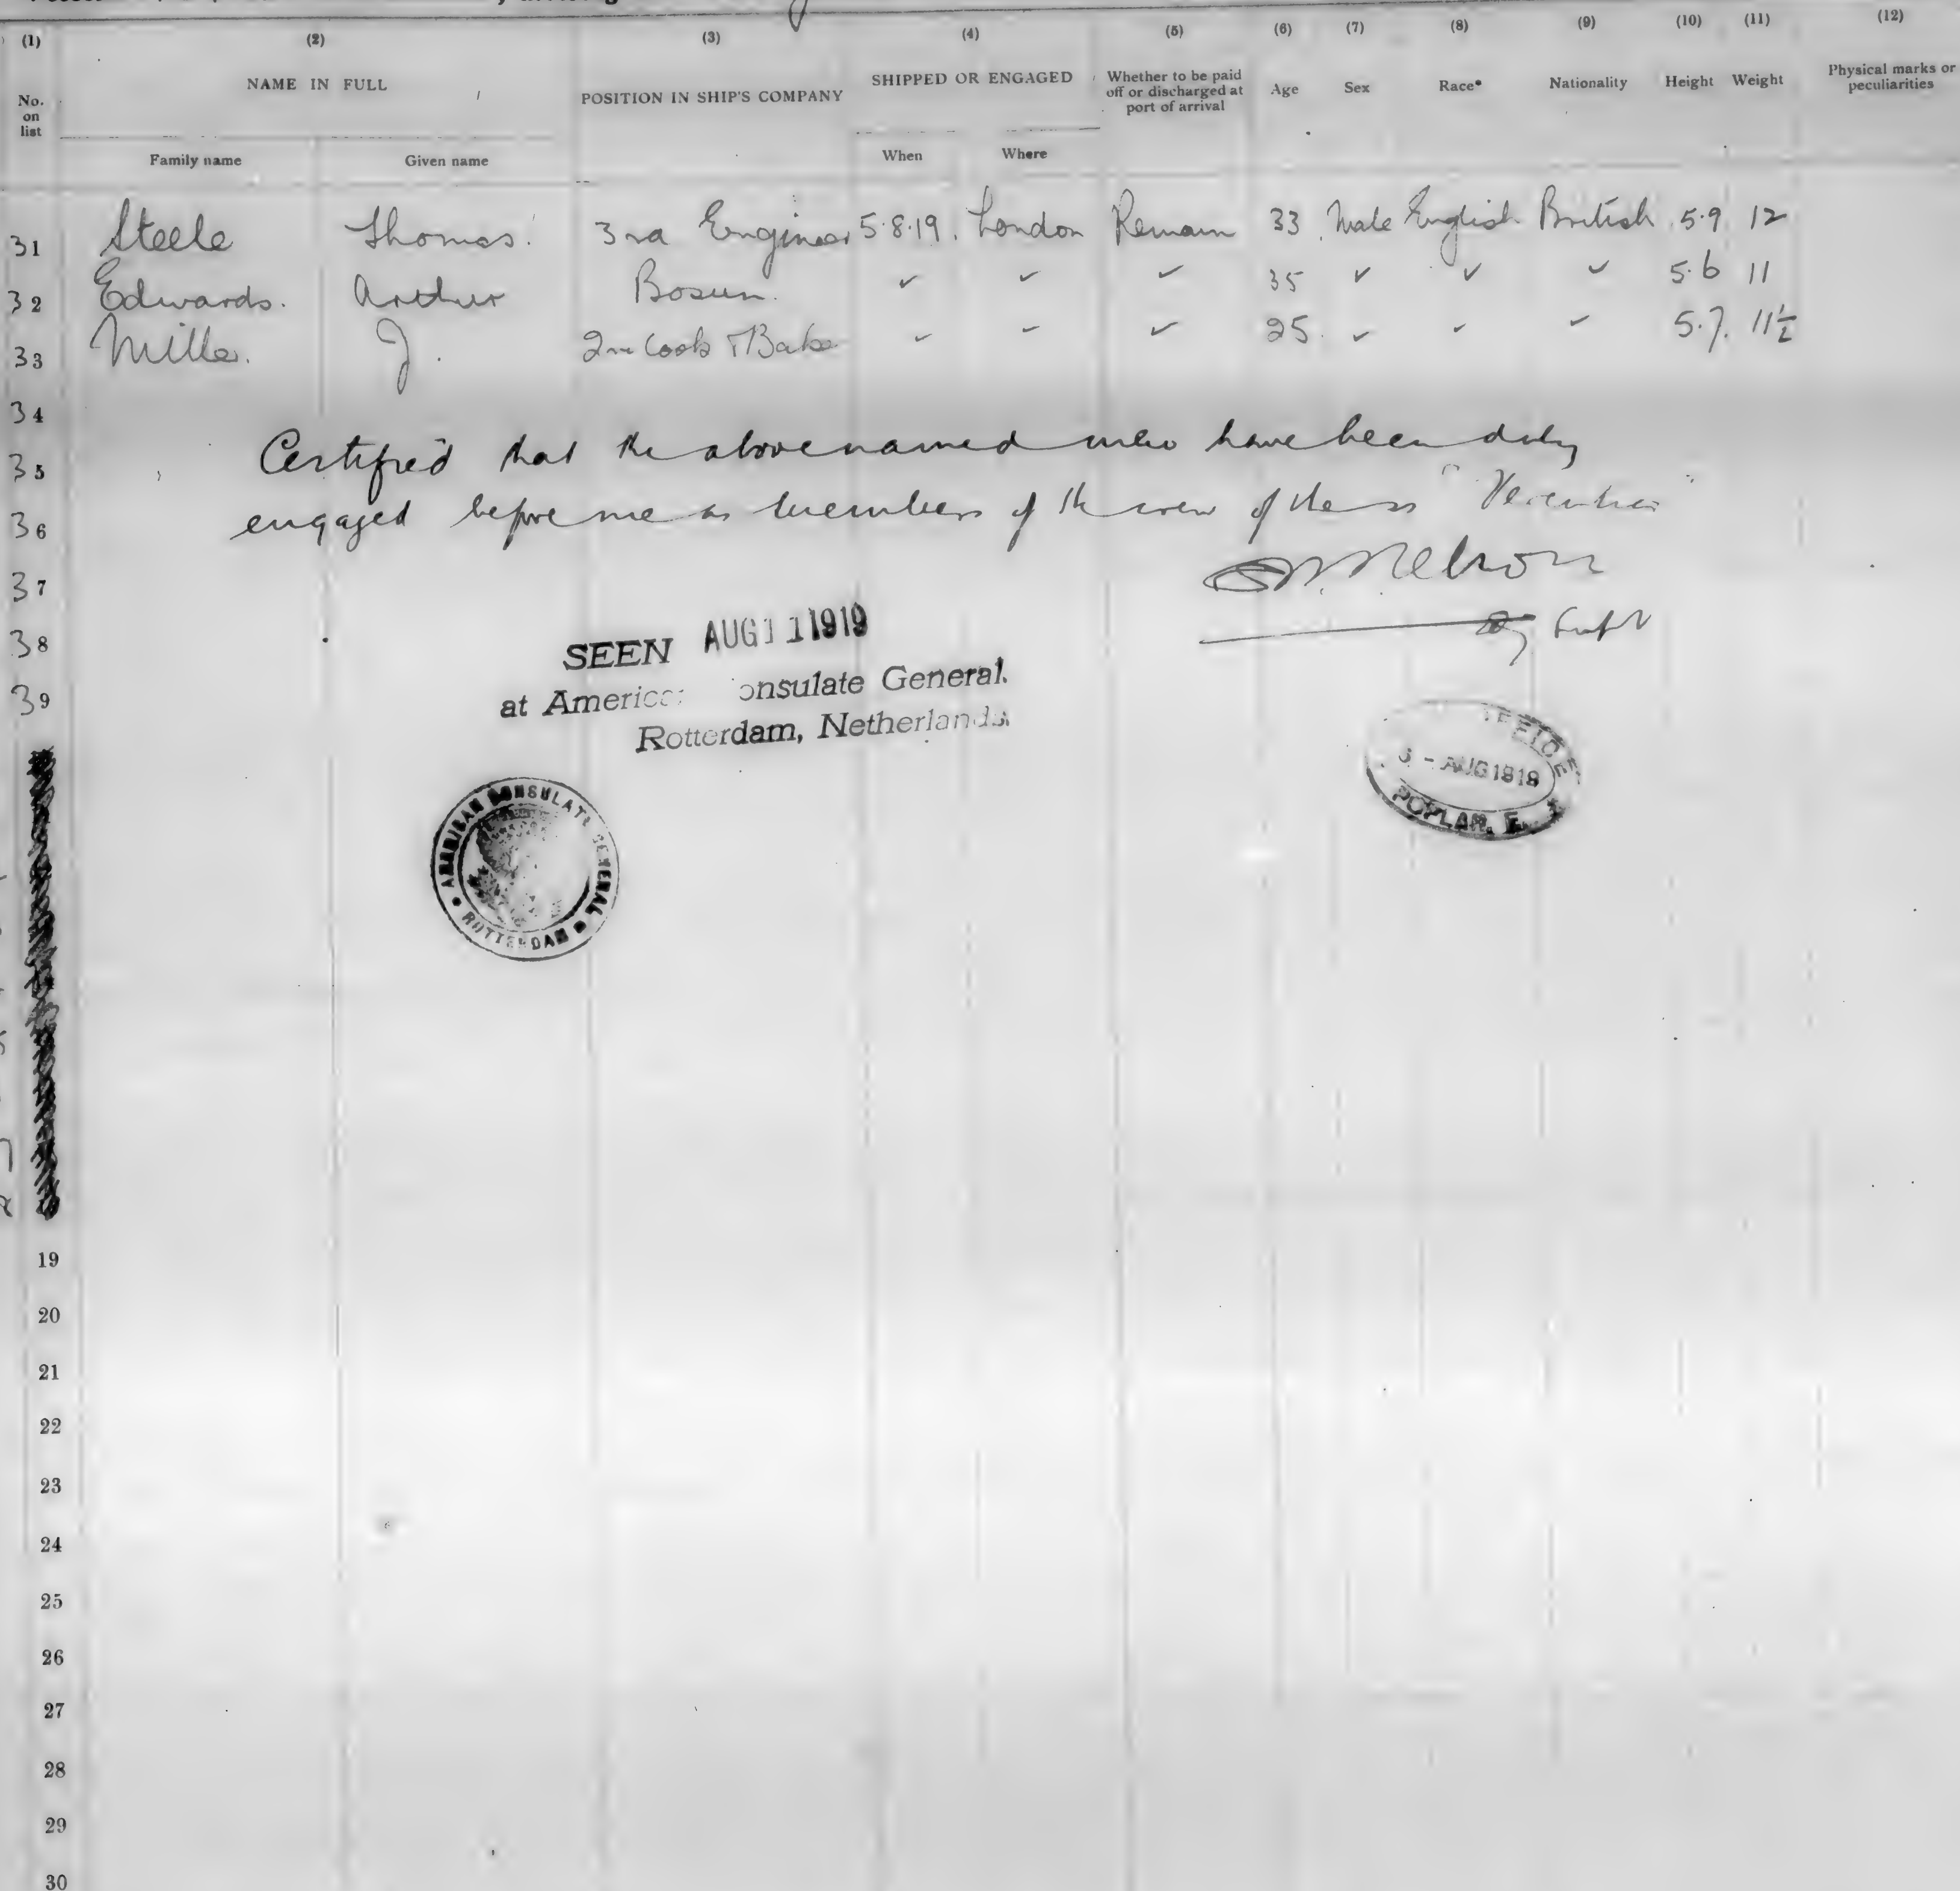 (1) (2) (3) (4) (5) (6) (7) (8) (9) (10) (11) (12)
No. on list NAME IN FULL POSITION IN SHIP'S COMPANY SHIPPED OR ENGAGED Whether to be paid off or discharged at port of arrival Age Sex Race* Nationality Height Weight Physical marks or peculiarities
Family name Given name When Where
31 Steele Thomas. 3rd Engineer 5.8.19. London Remain 33 Male English British 5.9 12
32 Edwards. Arthur Bosun. ✓ ✓ ✓ 35 ✓ ✓ ✓ 5.6 11
33 J. Cook & 25 5.7. 11½
34
35 Certified that the abovenamed men have been duly
36 engaged before me as members of the crew of the ss
37 Nelson
38 Supt
39
SEEN AUG 11 1919
at America onsulate General.
Rotterdam, Netherlands.
AMERICAN CONSULATE GENERAL
ROTTERDAM
AUG 1919
POPLAR, E.
19
20
21
22
23
24
25
26
27
28
29
30